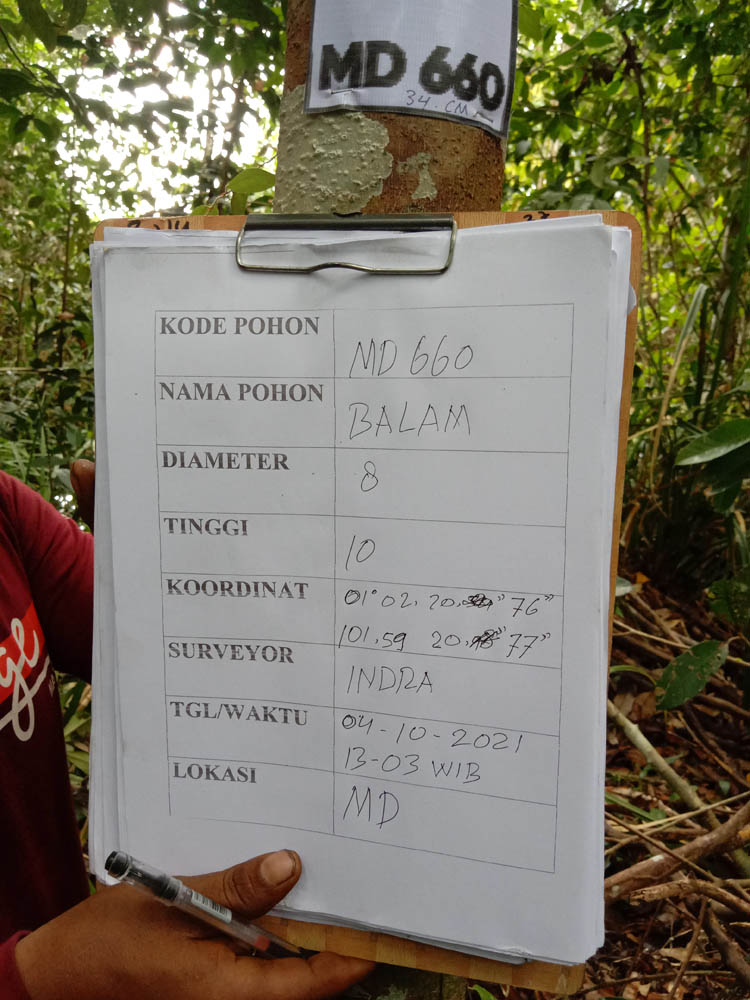 MD 660
34. CM
KODE POHON MD 660
NAMA POHON BALAM
DIAMETER 8
TINGGI 10
KOORDINAT 01° 02, 20, "76"
101,59 20, "77"
SURVEYOR INDRA
TGL/WAKTU 04-10-2021
13-03 WIB
LOKASI MD